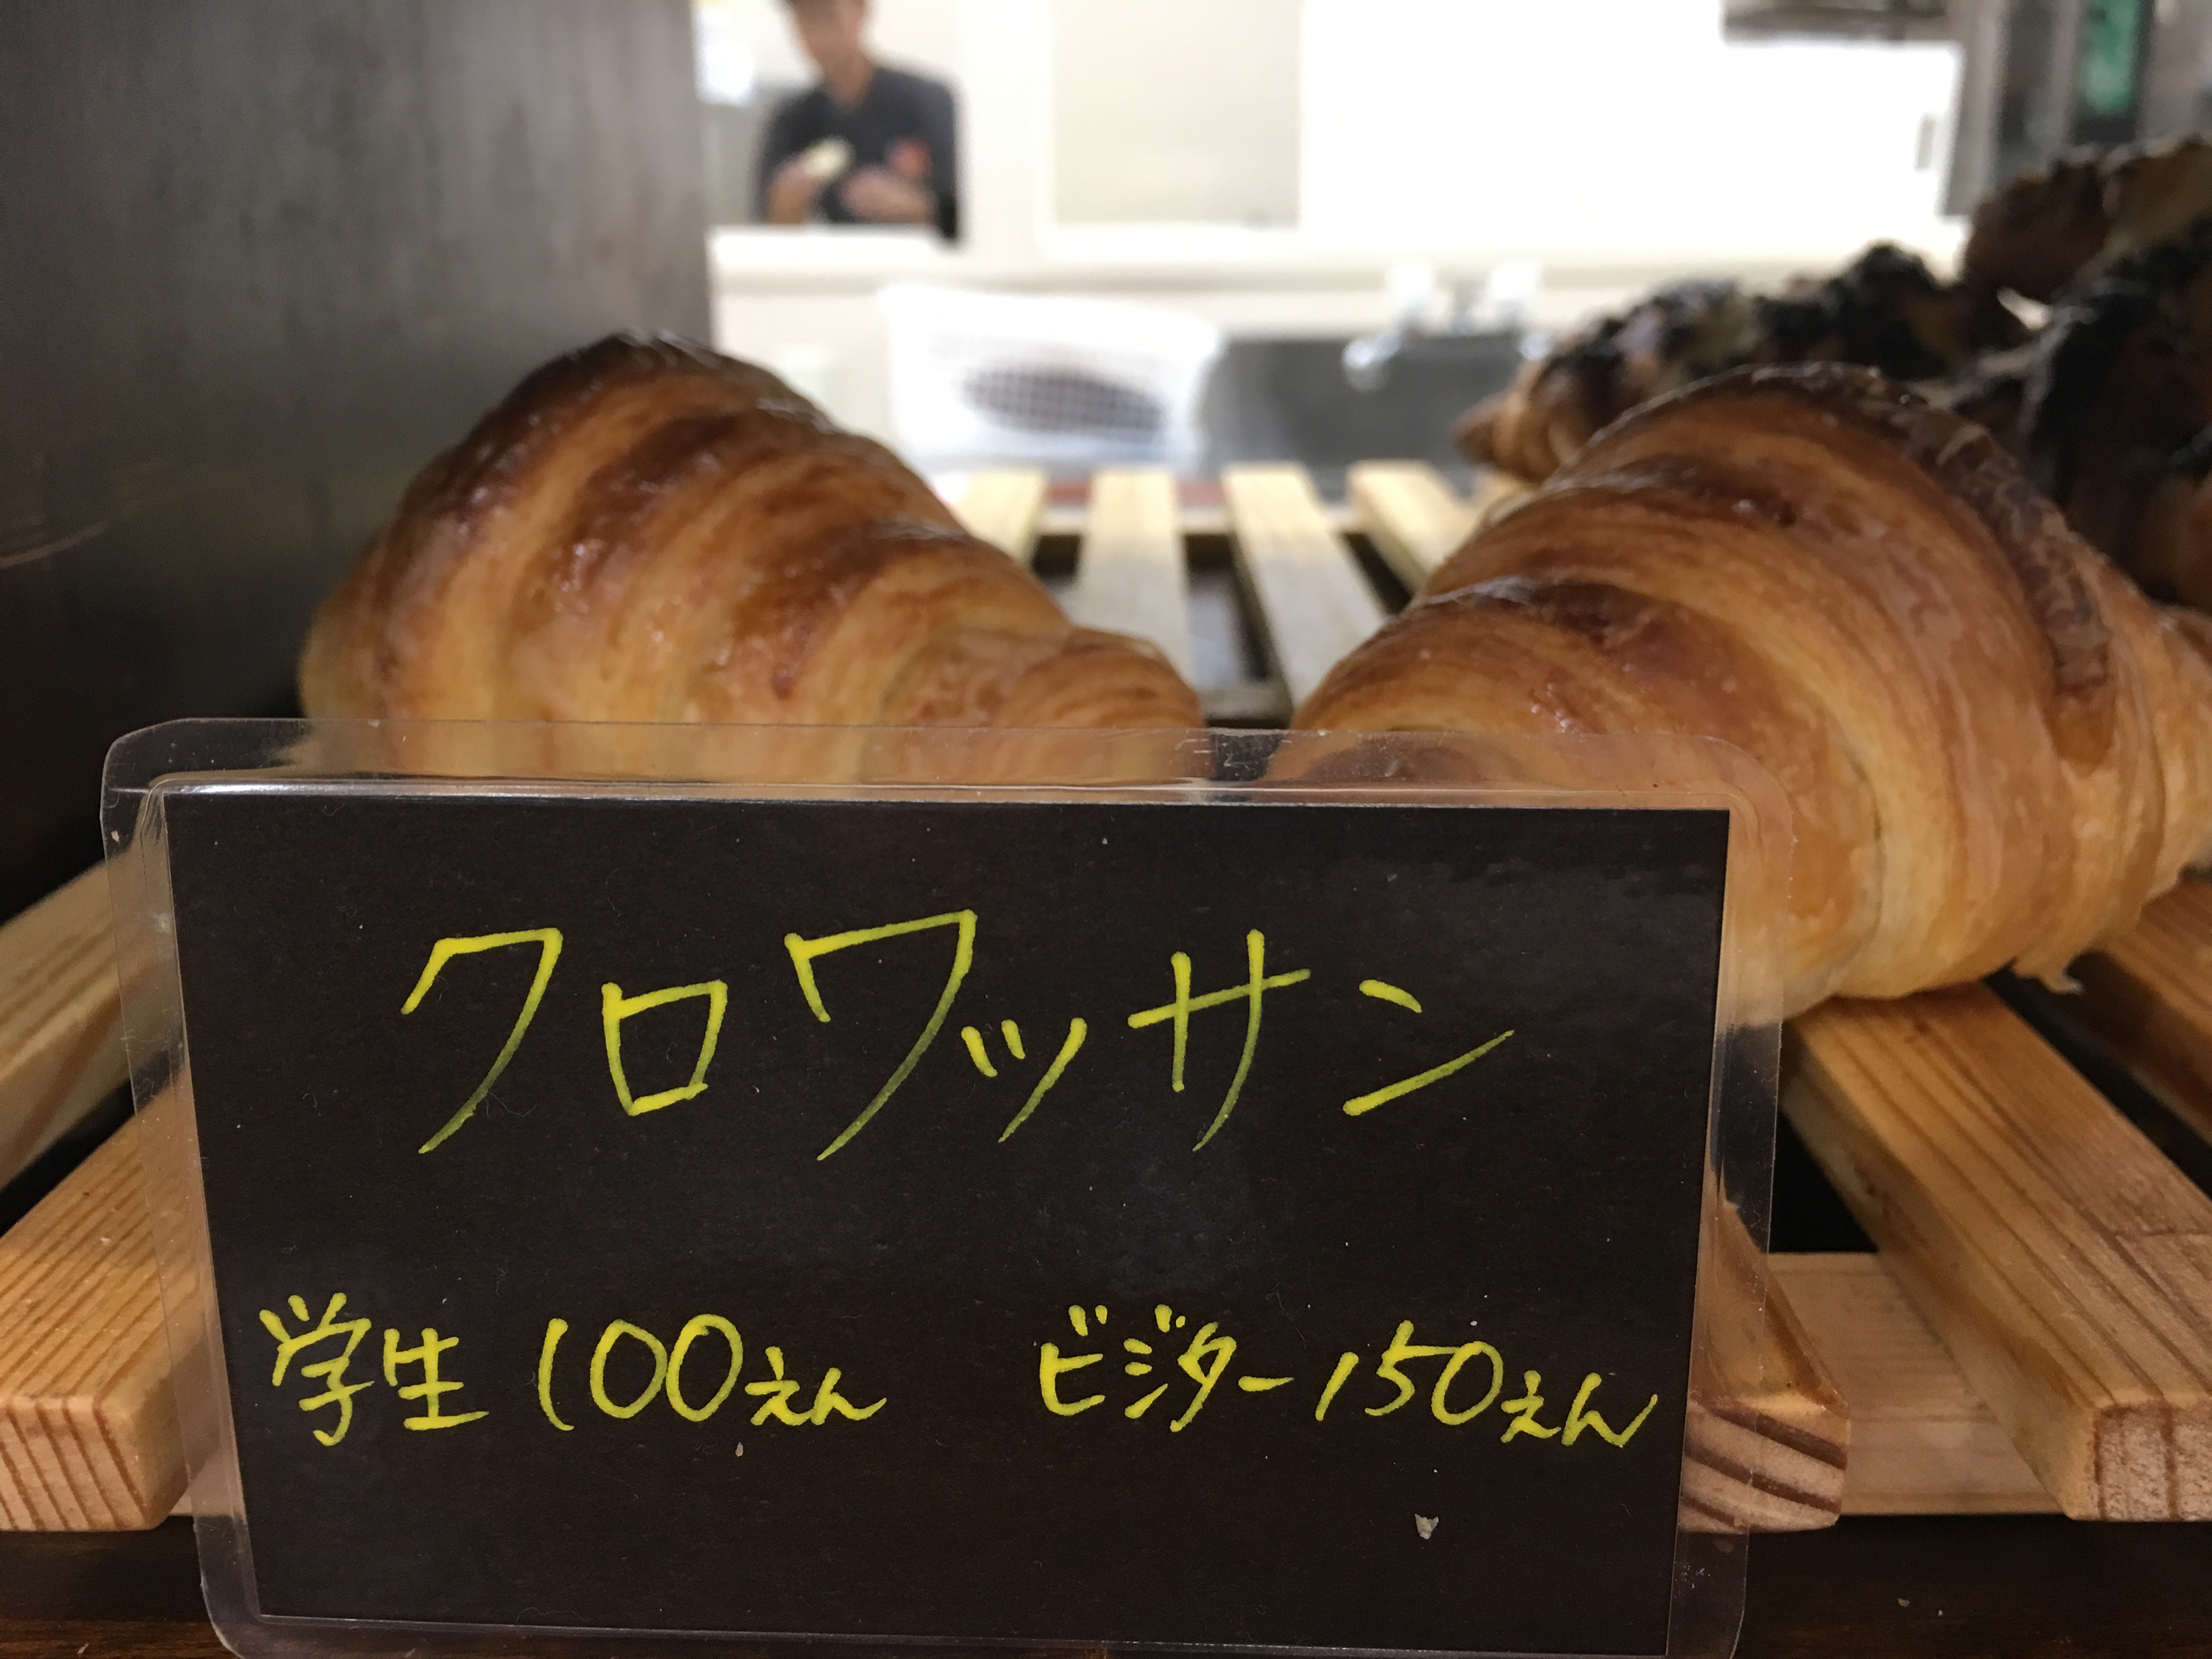 クロワッサン
学生 100えん ビジター 150えん